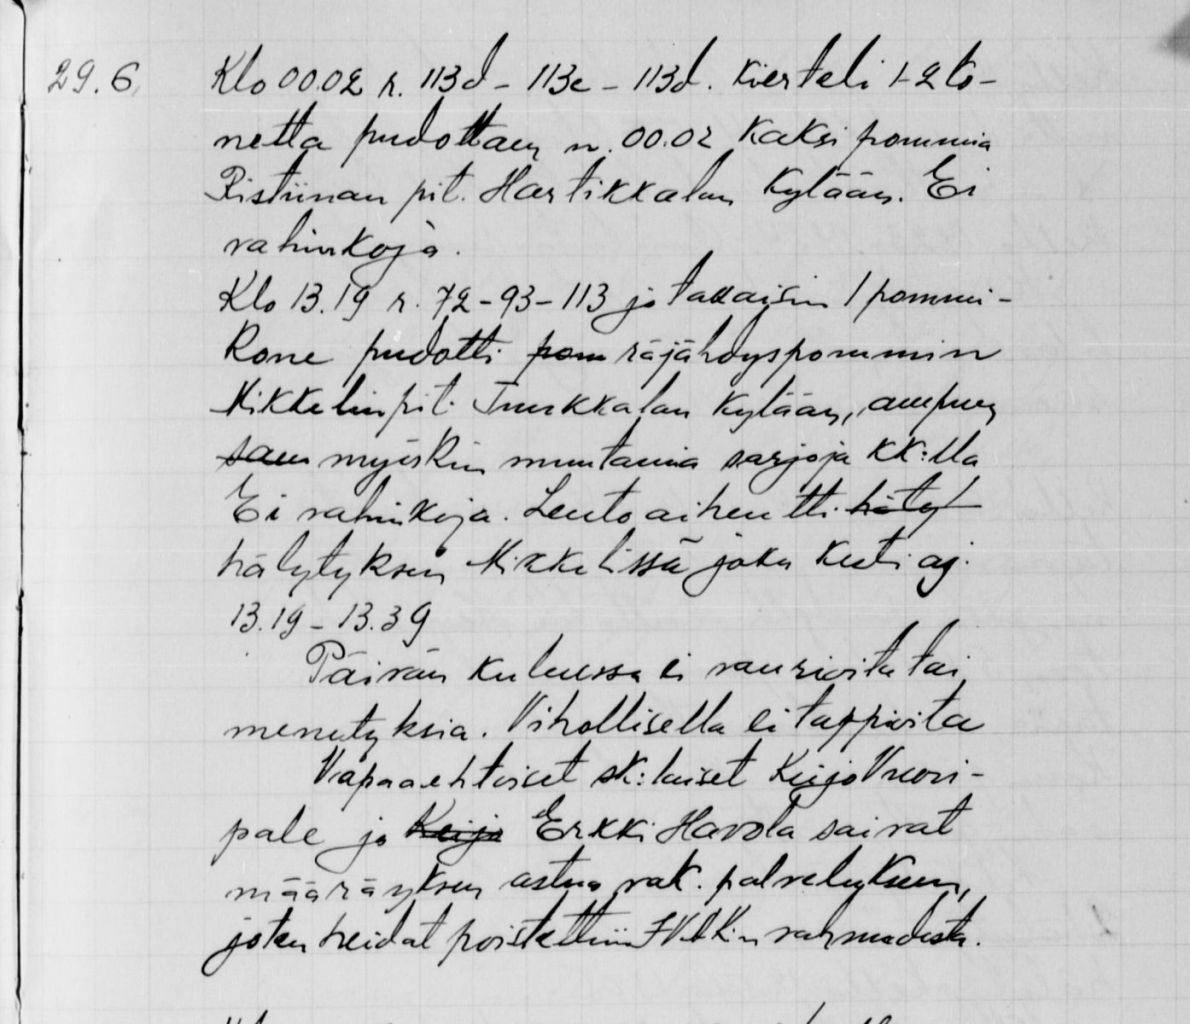 29.6. Klo 00.02 r. 113d - 113c - 113d. kierteli 1-2 ko-
netta pudottaen n. 00.02 kaksi pommia
Ristiinan pit. Hartikkalan kylään. Ei
vahinkoja.
Klo 13.19 r. 72-93-113 ja takaisin 1 pommi-
kone pudotti pom räjähdyspommin
Mikkelin pit. kylään, ampuen
saen myöskin muutamia sarjoja KK:lla
Ei vahinkoja. Lento aiheutti hälyt
hälytyksen Mikkelissä joka kesti aj.
13.19 - 13.39
Päivän kuluessa ei vaurioita tai
menetyksiä. Vihollisella ei tappioita
Vapaaehtoiset sk:laiset Keijo Vuori-
pale ja Keijo Erkki Havola saivat
määräyksen astua vak. palvelukseen,
joten heidät poistettiin vahvuudesta.